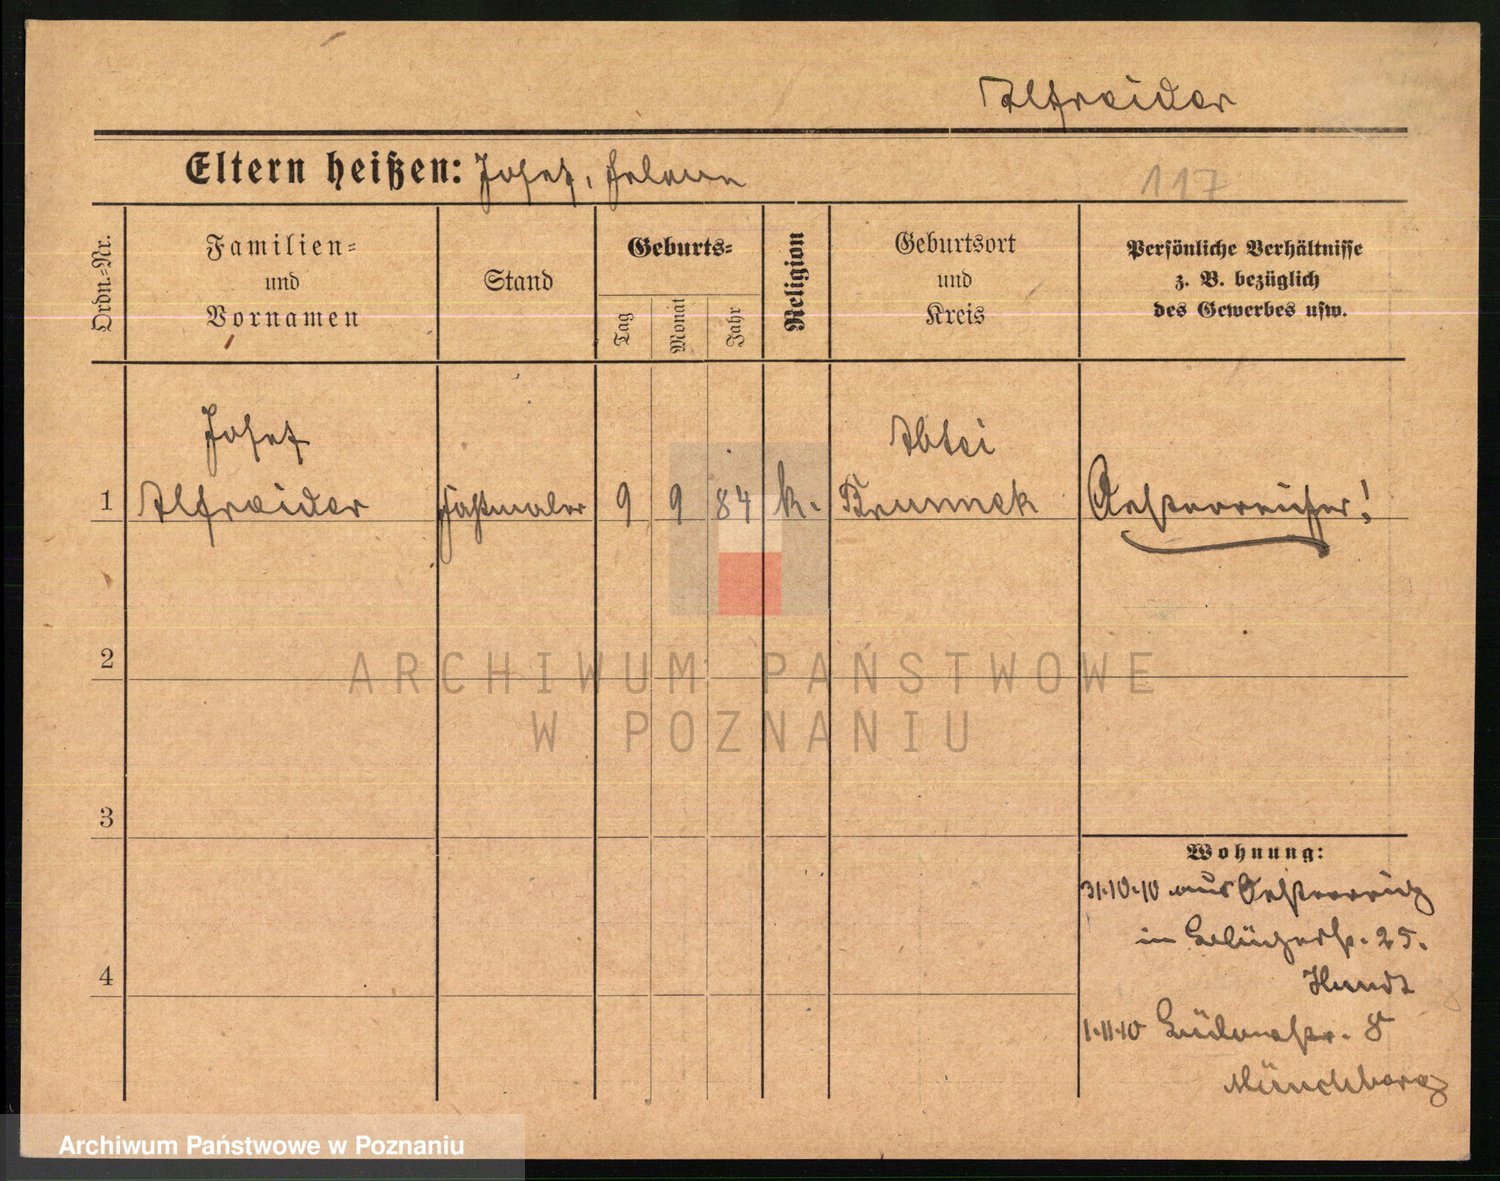 Alfreider
Eltern heißen: Josef, Helene
117
Ordn.-Nr.
Familien-
und
Vornamen
Stand
Geburts-
Tag
Monat
Jahr
Religion
Geburtsort
und
Kreis
Persönliche Verhältnisse
z. B. bezüglich
des Gewerbes usw.
Josef
Abtei
1 Alfreider 9 9 84 k. Brunneck Oesterreicher!
2
3
4
Wohnung:
31.10.10 aus Oesterreich
in 25.
Hundt
1.11.10 8
Münchberg
ARCHIWUM PAŃSTWOWE
W POZNANIU
Archiwum Państwowe w Poznaniu